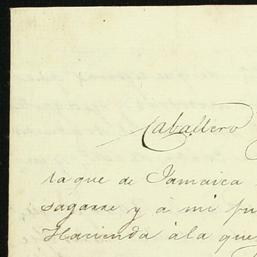 Caballero
la que de Jamaica
sagarre y á mi
Hacienda á la que